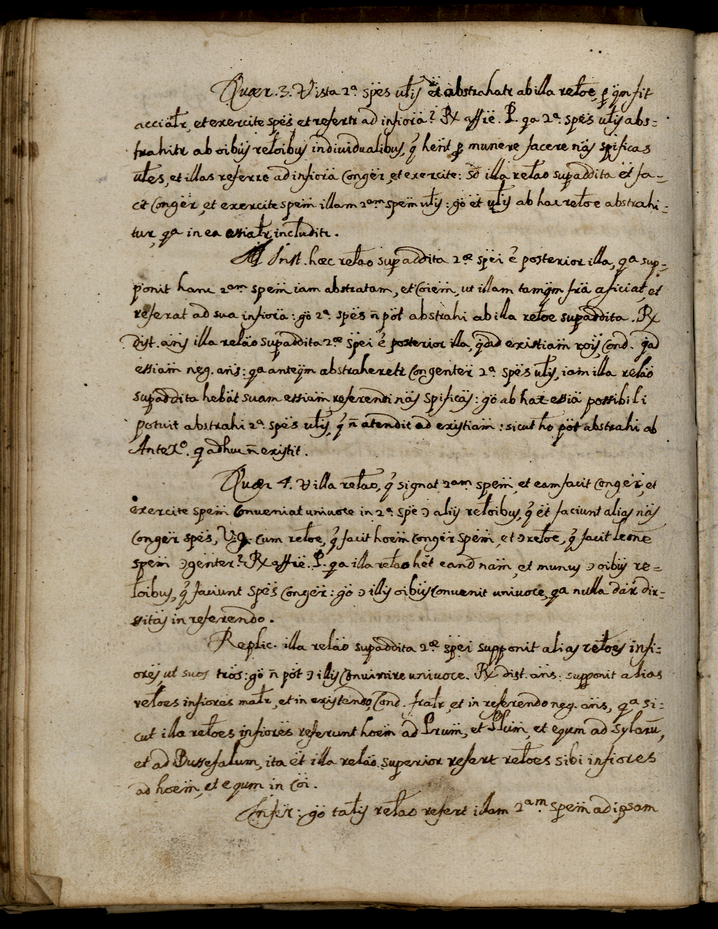 Quær. 3. Vista 2ª spēs utlis et abstrahatr ab illa reloe, p̱ qm fit
acciatr, et exercite spēs et refertr ad infiora? R̷ affiē. P. qa 2ª spēs utlis abs=
trahitr ab oibus reloibus individualibus, q̄ hēnt p̱ munere facere nās spificas
utles, et illas referre ad infiora Congēr, et exercite: sd̄ illa relao supaddita ēt fa=
cit Congēr, et exercite spem̄ illam 2am spem̄ utlis: gō ēt utlis ab hac reloe abstrahi=
tur, qa in ea essiatr includitr.
Inst. hæc relao supaddita 2æ spēi ē posterior illa, qa sup=
ponit hanc 2am spem̄ iam abstratam, et Coīem, ut illam tamqm frā aficiat, et
referat ad sua infiora: gō 2ª spēs n̄ pōt abstrahi ab illa reloe supaddita. R̷
Dist. ans illa relao supaddita 2æ spēi ē posterior illa, qad existiam Cond. qad
essiam neg. ans: qa anteqm abstraheretr Congenter 2ª spēs utlis, iam illa relao
supaddita hebāt suam essiam referendi nās spificas: gō ab hac essiā possibili
potuit abstrahi 2ª spēs utlis, q̄ n̄ atendit ad existiam: sicut ho pōt abstrahi ab
Antexo. q adhuc n̄ existit.
Quær 4. V illa relao, q̄ signat 2am spem̄, et eam facit Congēr, et
exercite spem̄ Conveniat univoce in 2ª spē ɔ aliis reloibus, q̄ ēt faciunt alias nās
Congēr spēs, V.g. Cum reloe, q̄ facit hoem̄ Congēr spem̄, et ɔ reloe, q̄ facit leone
spem̄ ɔgenter? R̷ affiē. P. qa illa relao hēt eand nam̄, et munus ɔ oibus re=
loibus, q̄ faciunt spēs Congēr: gō ɔ illis oibus Convenit univoce, qa nulla dar̄ dir=
sitas in referendo.
Replic. illa relao supaddita 2æ spēi supponit alias reloes infi=
ores ut suos tros: gō n̄ pōt ɔ illis Convenire univoce. R̷ dist. ans. supponit alias
reloes infiores matr, et in existendo, Cond. fratr, et in referendo neg. ans, qa si=
cut illa reloes infiores referunt hoem̄ ad Prum̄, et Plum̄, et equm ad Sylanu,
et ad Bussefalum, ita ēt illa relao superior refert reloes sibi infiores
ad hoem̄, et equm in Coi.
Infer: gō talis relao refert illam 2am spem̄ ad ipsam